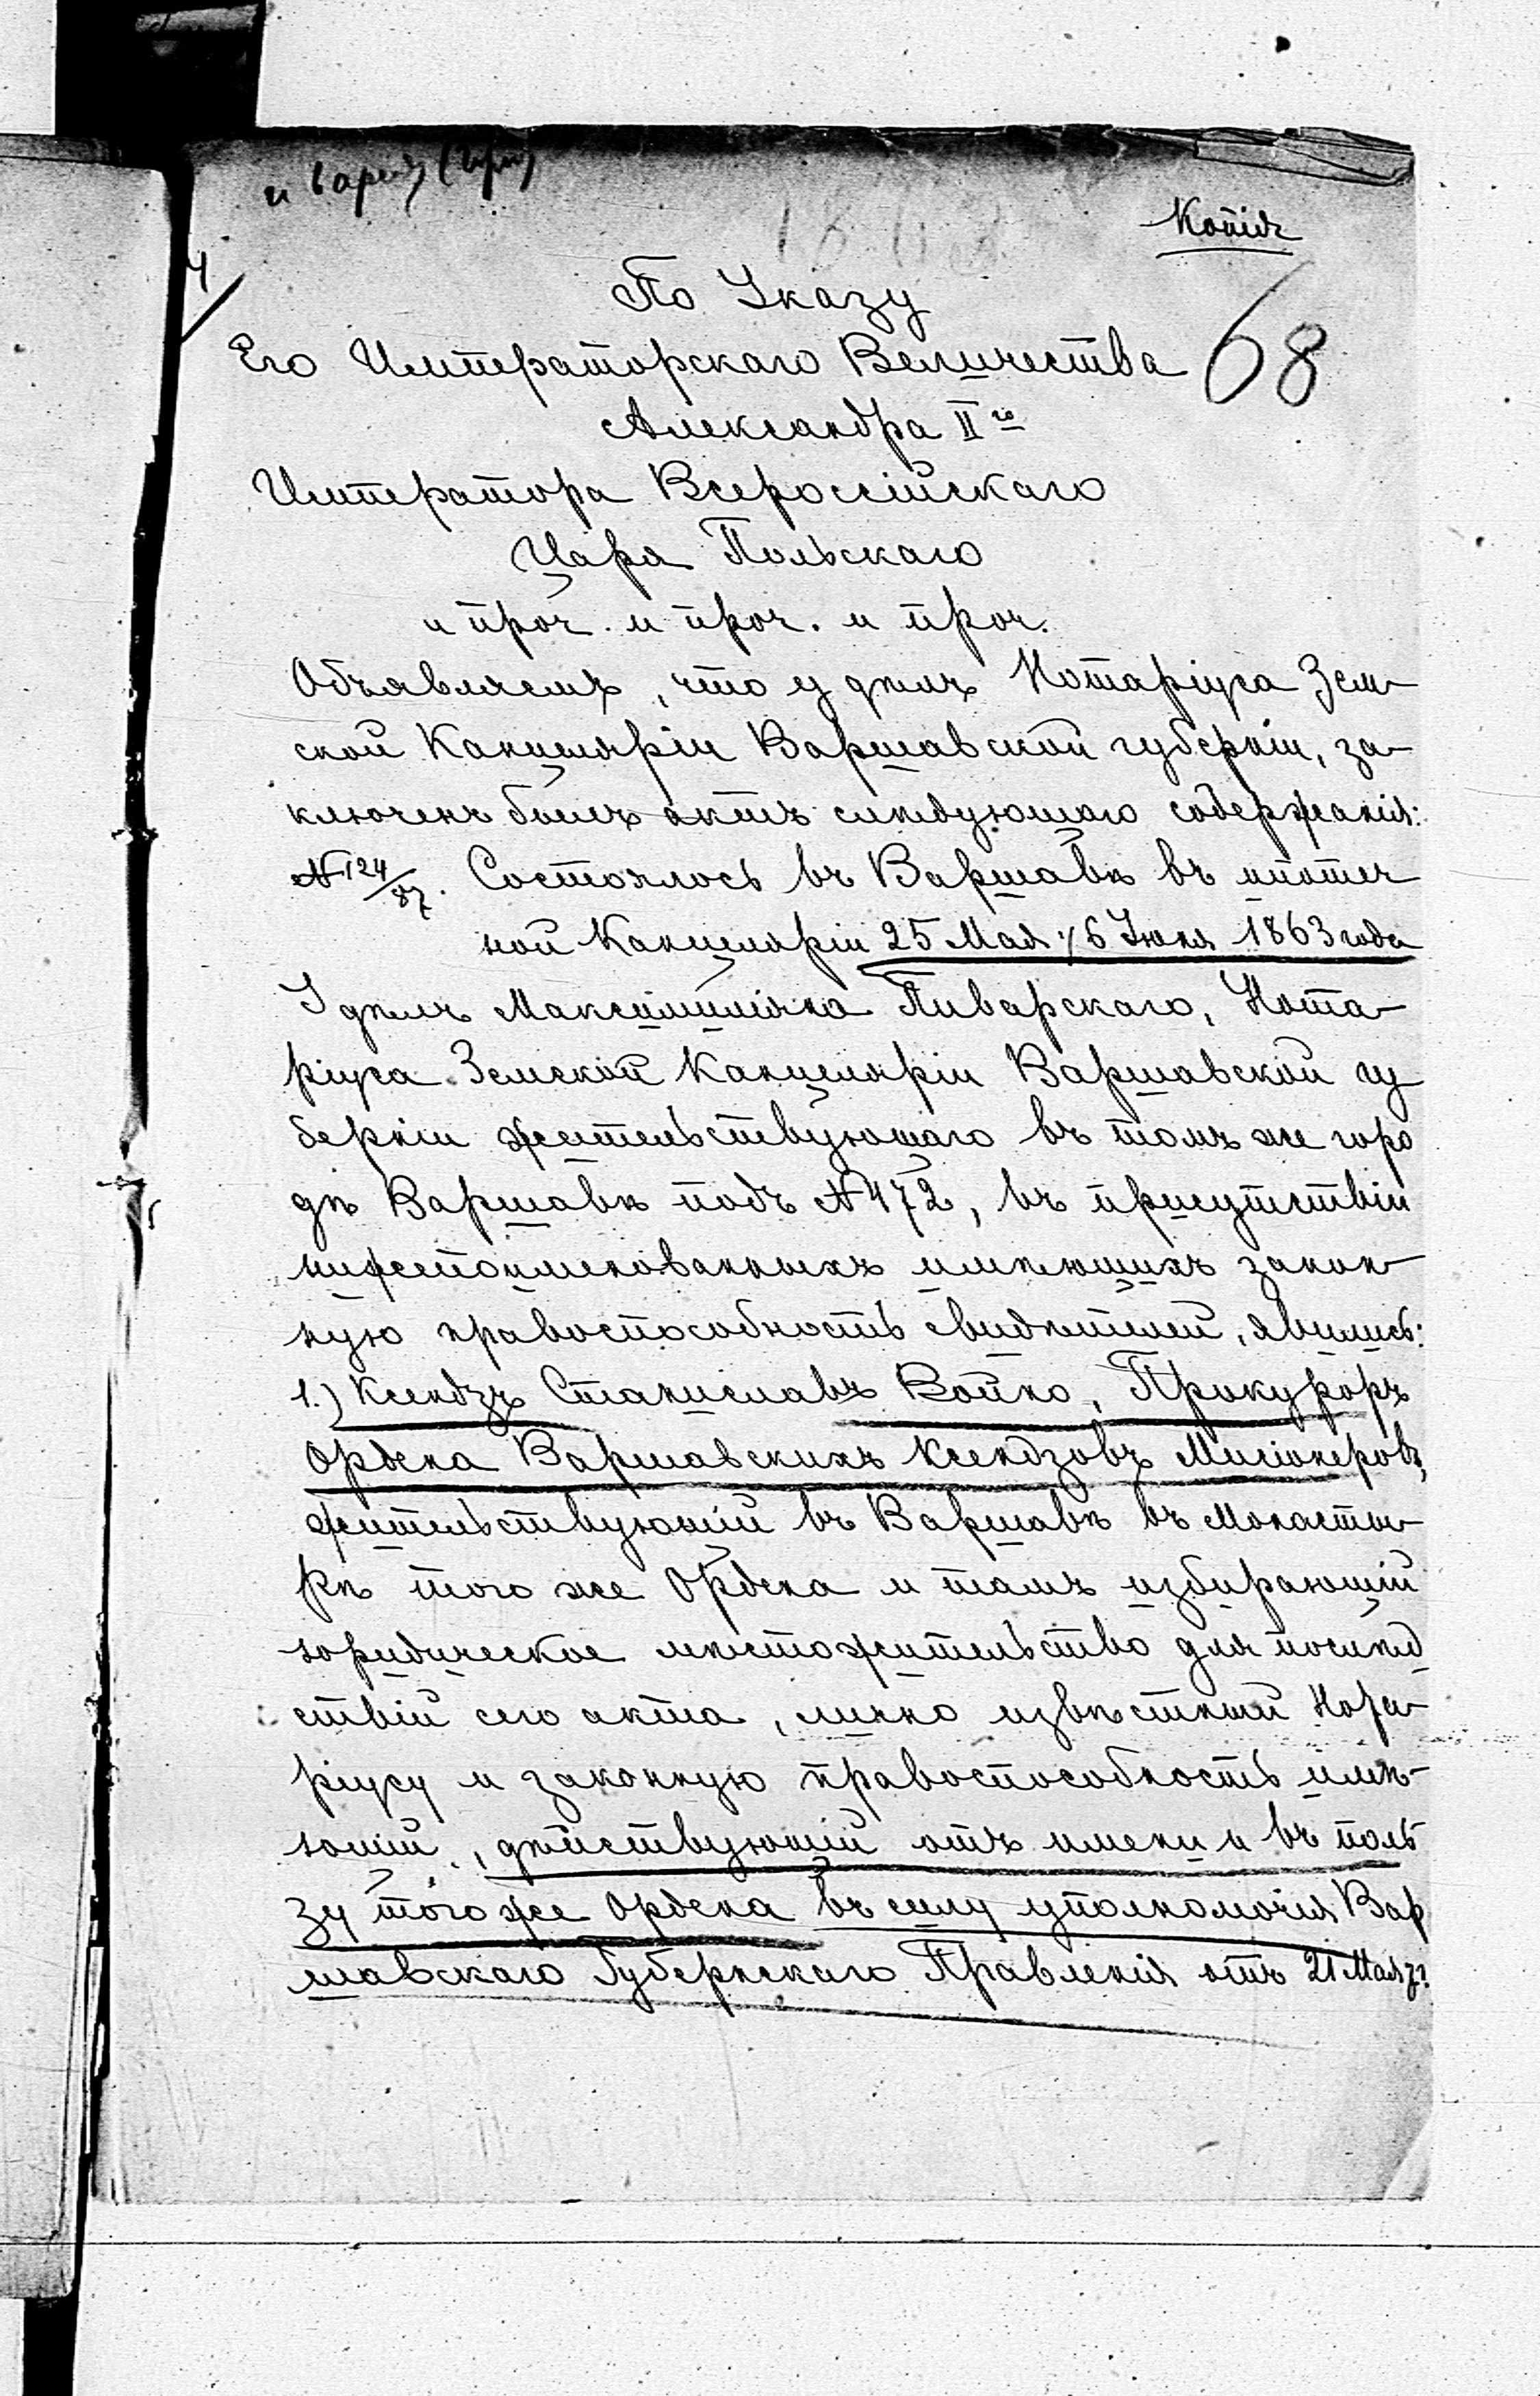 Копія
68
По Указу
Его Императорскаго Величества
Александра II го
Императора Всероссійскаго
Царя Польскаго
и проч. и проч. и проч.
Объявляемъ, что у дѣлъ Нотаріуса Зем-
ской Канцеляріи Варшавской губерніи, за-
ключенъ былъ актъ слѣдующаго содержанія:
№ 124/87. Состоялось въ Варшавѣ въ ипотеч
ной Канцеляріи 25 Мая /6 Іюня 1863 года
У дѣлъ Максимиліяна Пиварскаго, Нота-
ріуса Земской Канцеляріи Варшавской гу
берніи жительствующаго въ томъ же горо
дѣ Варшавѣ подъ № 472, въ присутствіи
нижепоименованныхъ имѣющихъ закон-
ную правоспособность свидѣтелей, явились:
1.) Ксендзъ Станиславъ Война, Прокуроръ
Ордена Варшавскихъ Ксендзовъ Мисіонеровъ,
жительствующій въ Варшавѣ въ Монасты-
рѣ того же Ордена и тамъ избирающій
юридическое мѣстожительство для послѣд
ствій сего акта, лично извѣстный Нота-
ріусу и законную правоспособность имѣ-
ющій, дѣйствующій отъ имени и въ поль
зу того же Ордена въ силу уполномочія Вар
шавскаго Губернскаго Правленія отъ 21 Мая